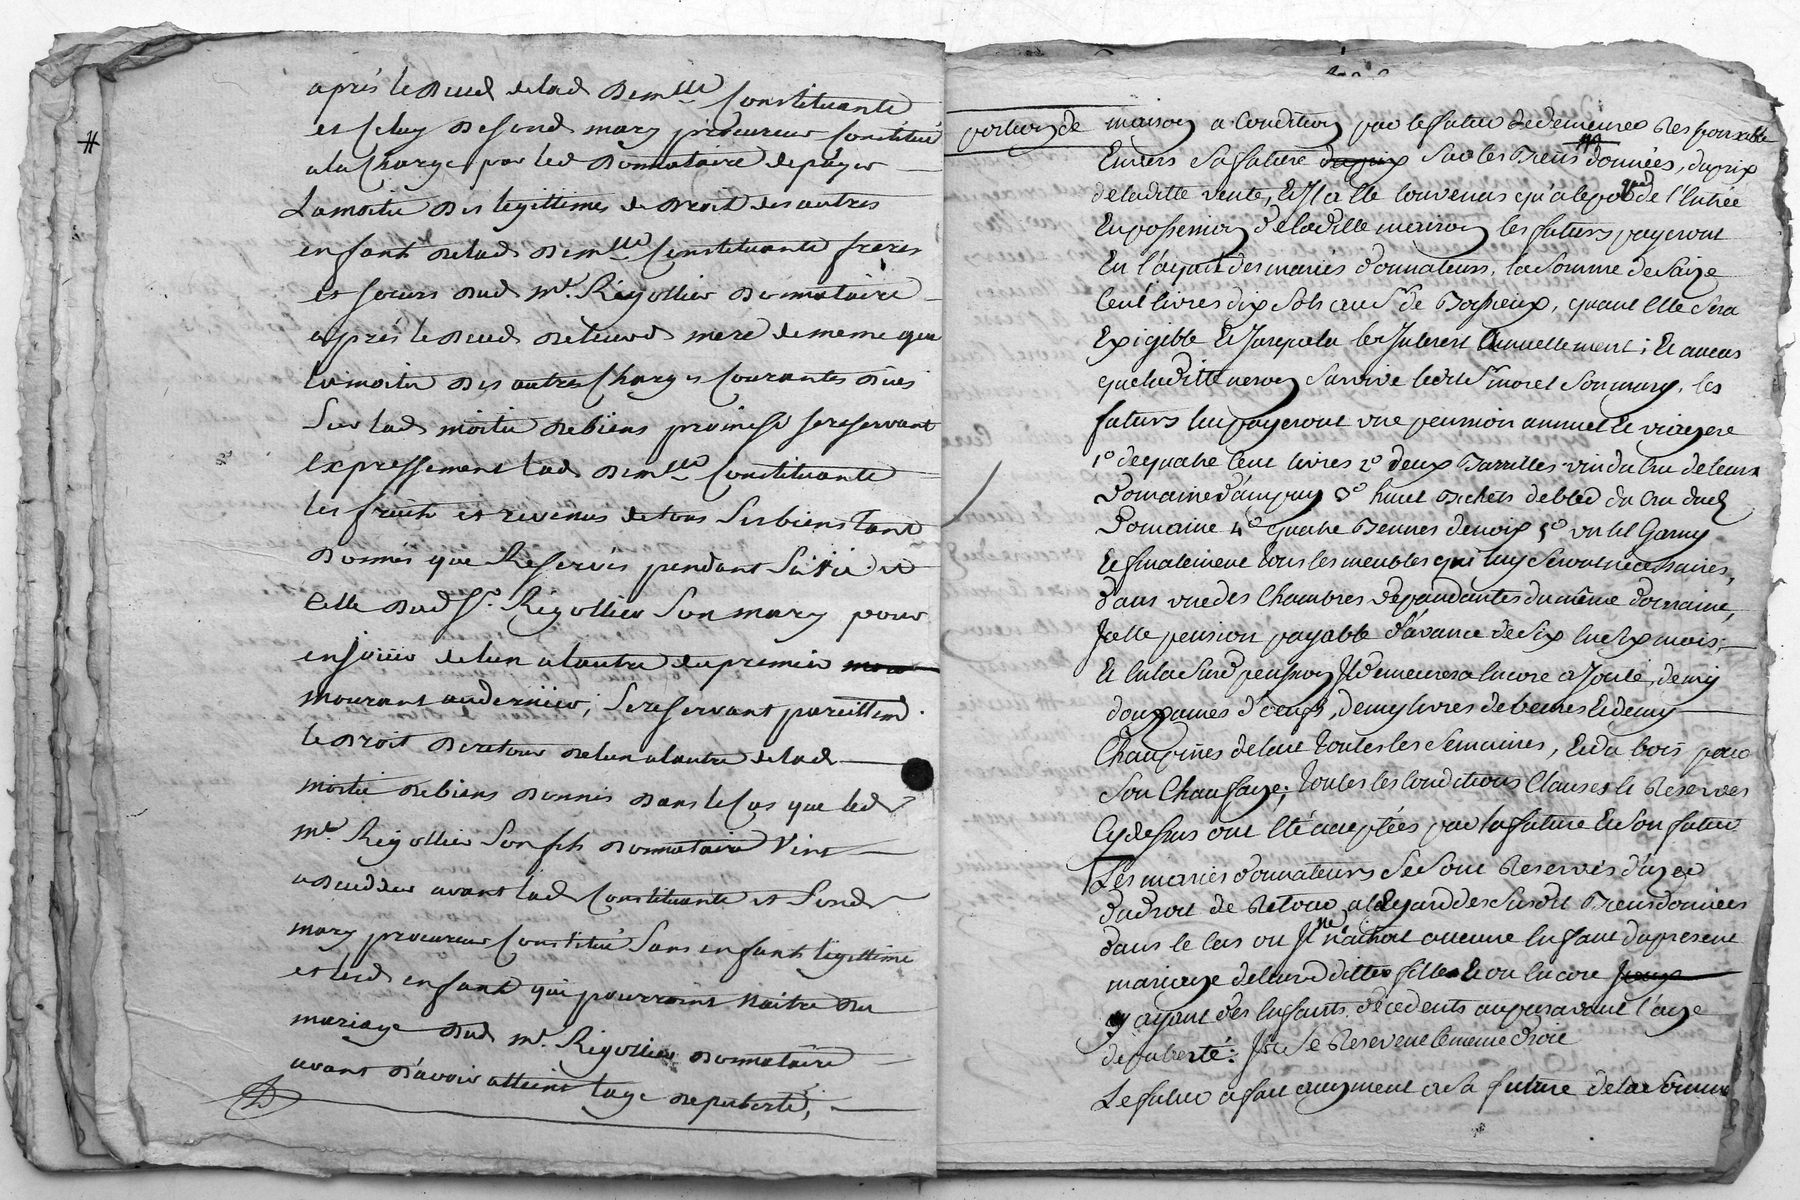 après le deced de lad demlle Constituante
et celuy de sond mary procureur Constitué
a la Charge par led donnataire de payer
La moitié des legittimes de droit des autres
enfant de lad demlle Constituante freres
et soeurs dud mr. Rigollier donnataire
après le deced de leurd mere de meme que
la moitié des autres Charges Courantes dües
Sur lad moitié de biens promise se reservant
expressement lad demlle Constituante
les fruits et revenus de tous Ses biens tant
donnés que Reservés pendant Sa vie et
Celle dud Sr. Rigollier Son mary pour
en joüir de lun a lautre du premier
mourant au dernier, Se reservant pareillemt
le droit de retour de lun a lautre de lad
moitié de biens donnés dans le Cas que led
mre Rigollier Son fils donnataire Vint
a deceder avant lad Constituante et Sond
mary procureur Constitué Sans enfant legittime
et lesd enfant qui pourroint Naitre du
mariage dud mr. Rigollier donnataire
avant d'avoir atteint lage de puberté,
portion de maison a condition par le futur de demeurer Responsable
Envers Sa future du prix Sur les Biens données, du prix
de laditte vente, Et Il a été Convenus qu'a le de l'Entrée
En possession de laditte maison les futurs payeront
En l'ayant des mariés donnateurs, la Somme de Saize
Cent livres dix Sols au Sr de Bassieux, quant Elle Sera
Exigible Et Jusque la les Interest annuellement; Et au cas
que laditte Survive ledit Sr morel Son mary, les
futurs luy payeront une pension annuelle viagere
1o de quatre Cent livres 2o deux Barrilles vin du Cru de leurs
Domaine 3o huit Bichets de bled du Cru dud
Domaine 4o quatre Bennes de noix 5o un lit Garny
Et finalement tous les meubles qui luy Seront necessaires,
dans une des Chambres dépandantes du même domaine,
Jcelle pension payable d'avance de Six En Six mois,
Et En la Susd pension Il demeurera Encore ajouté, demy
douzaines d'oeufs, demy livres de beurre Et demy
Chaupines de lait toutes les Semaines, Et du bois pour
Son Chaufage; Toutes les Conditions Clauses Et Reserves
Cy dessus ont Eté acceptées par la future Et Son futur
Les mariés donnateurs Se Sont Reservés d'uzer
du droit de Retour al'Egard des Susdit Biens données
dans le Cas ou Il ne naitroit aucune Enfant du présent
mariage de leurd ditte fille Et ou Encore
y ayant des Enfants décedents auparavant l'age
de puberté. Ils Se Reservent le meme droit
Le futur a fait augment a Sa future de la Somme